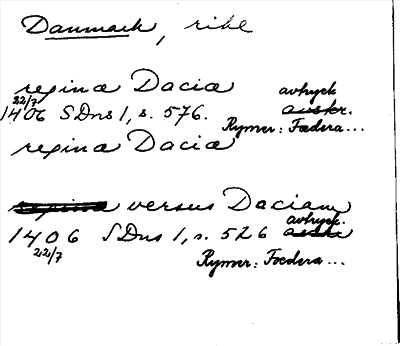 Danmark, rike
regina Dacia avtryck
22/7
1406 SDns 1, s. 576. avskr.
Rymer: Fœdera...
regina Dacia
regina versus Daciam
avtryck.
1406 SDns 1, s. 526 avskr
22/7
Rymer: Fœdera...